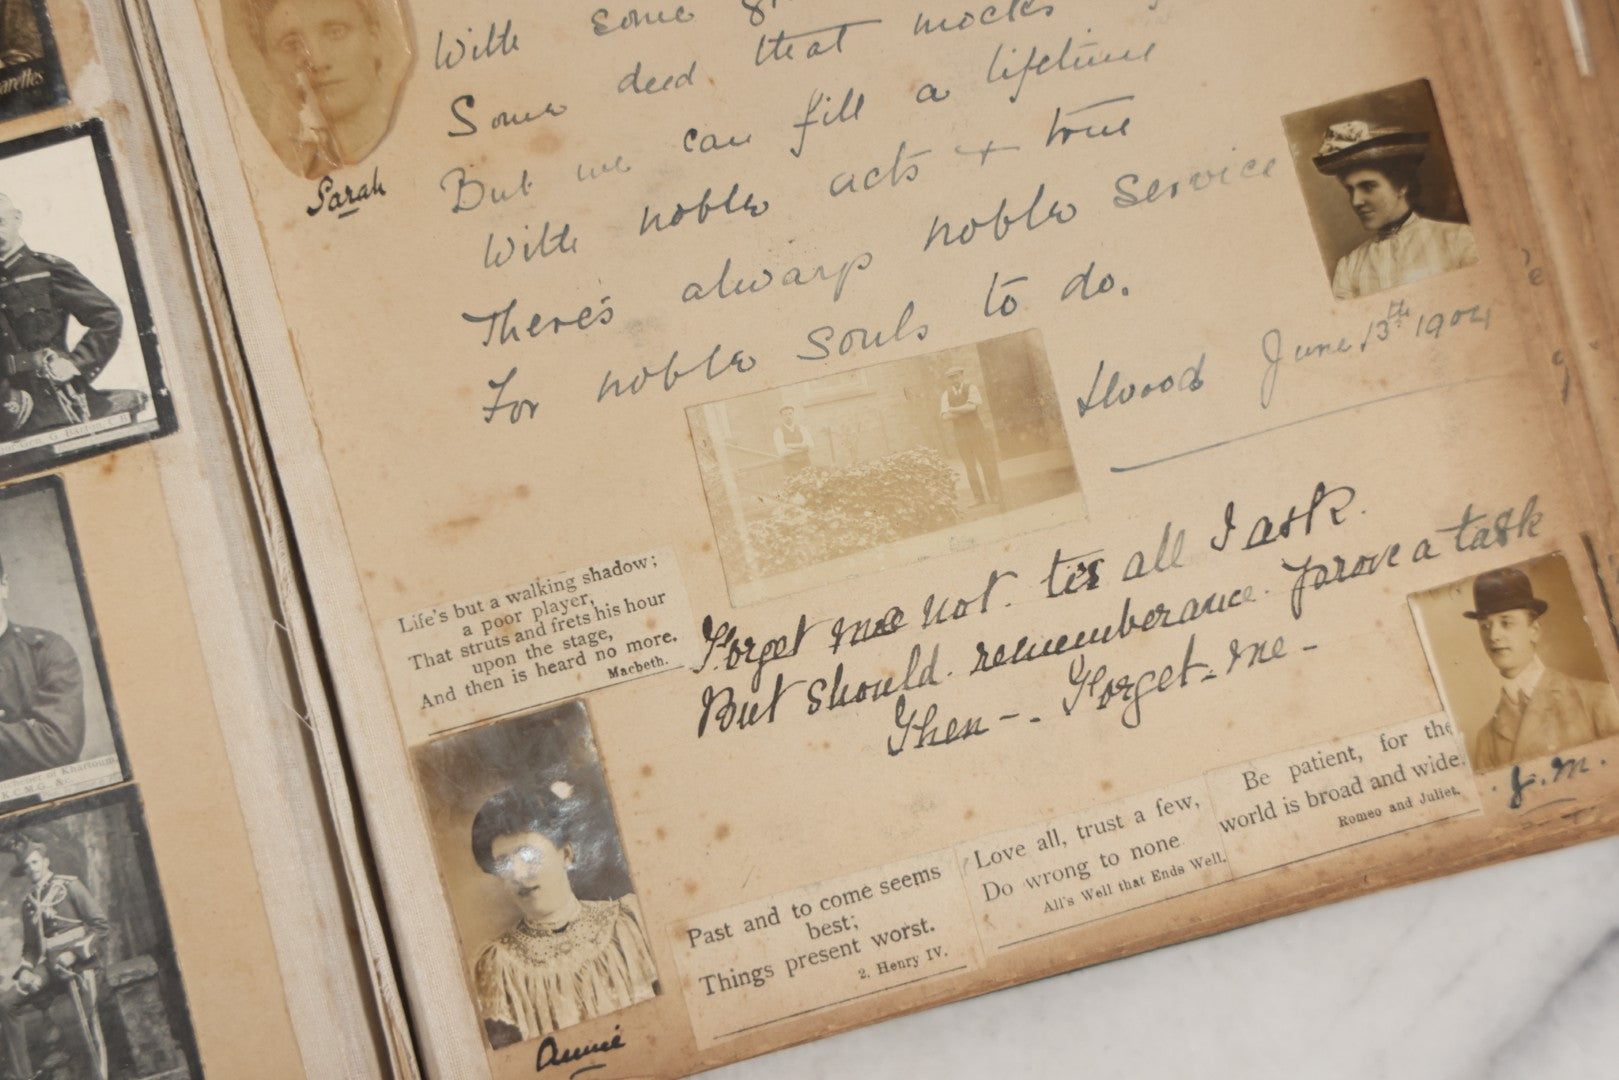 arettes
Sarah
With some
Some deed that mocks
But we can fill a lifetime
With noble acts + true
There's always noble service
For noble souls to do.
June 13th 1904
Life's but a walking shadow;
a poor player,
That struts and frets his hour
upon the stage,
And then is heard no more.
Macbeth.
Forget me not. tis all I ask.
But should. rememberance. prove a task
Then - . Forget. me -
Past and to come seems
best;
Things present worst.
2. Henry IV.
Love all, trust a few,
Do wrong to none.
All's Well that Ends Well.
Be patient, for the
world is broad and wide.
Romeo and Juliet.
J.M.
Annie
Gen. G. Barton, C.B.
of Khartoum
K.C.M.G. &c.